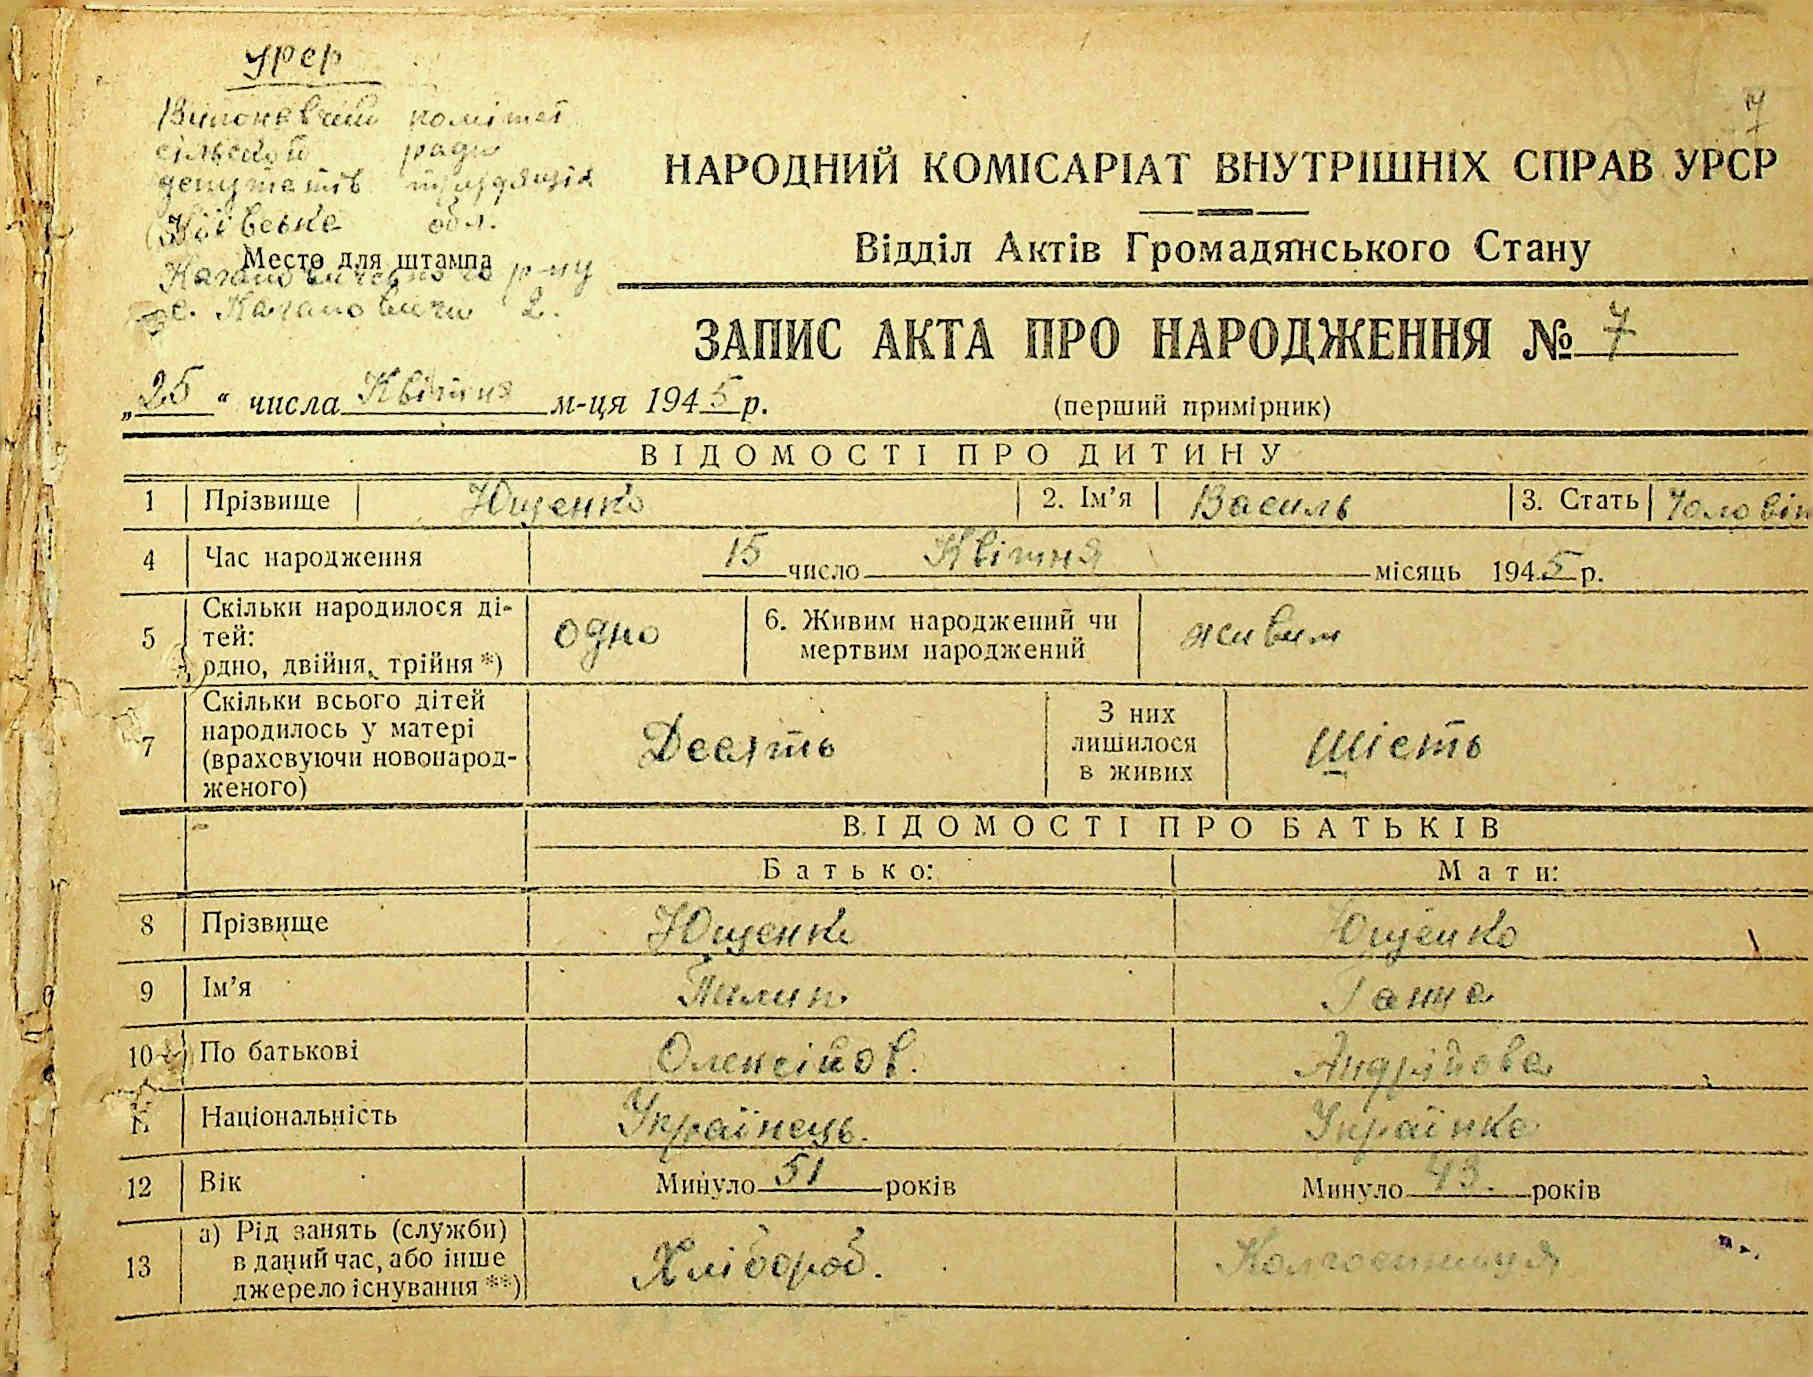 УРСР
Виконавчий комітет
сільської ради
депутатів трудящих
Київське обл.
Место для штампа
Кагановичевського р-ну
с. Кагановичи 2.
7
НАРОДНИЙ КОМІСАРІАТ ВНУТРІШНІХ СПРАВ УРСР
Відділ Актів Громадянського Стану
ЗАПИС АКТА ПРО НАРОДЖЕННЯ № 7
„25“ числа Квітня м-ця 1945 р.
(перший примірник)
ВІДОМОСТІ ПРО ДИТИНУ
1 Прізвище Ющенко 2. Ім’я Василь 3. Стать Чоловік
4 Час народження 15 число Квітня місяць 1945 р.
5 Скільки народилося ді-
тей:
одно, двійня, трійня *)
одно
6. Живим народжений чи
мертвим народжений
живим
7 Скільки всього дітей
народилось у матері
(враховуючи новонарод-
женого)
Десять
З них
лишилося
в живих
Шість
ВІДОМОСТІ ПРО БАТЬКІВ
Батько: Мати:
8 Прізвище Ющенко Ющенко
9 Ім’я Пилип Ганна
10 По батькові Олексійов. Андрійова
Національність Українець. Українка
12 Вік Минуло 51 років Минуло 43. років
13 а) Рід занять (служби)
в даний час, або інше
джерело існування **)
Хлібороб. Колгоспниця